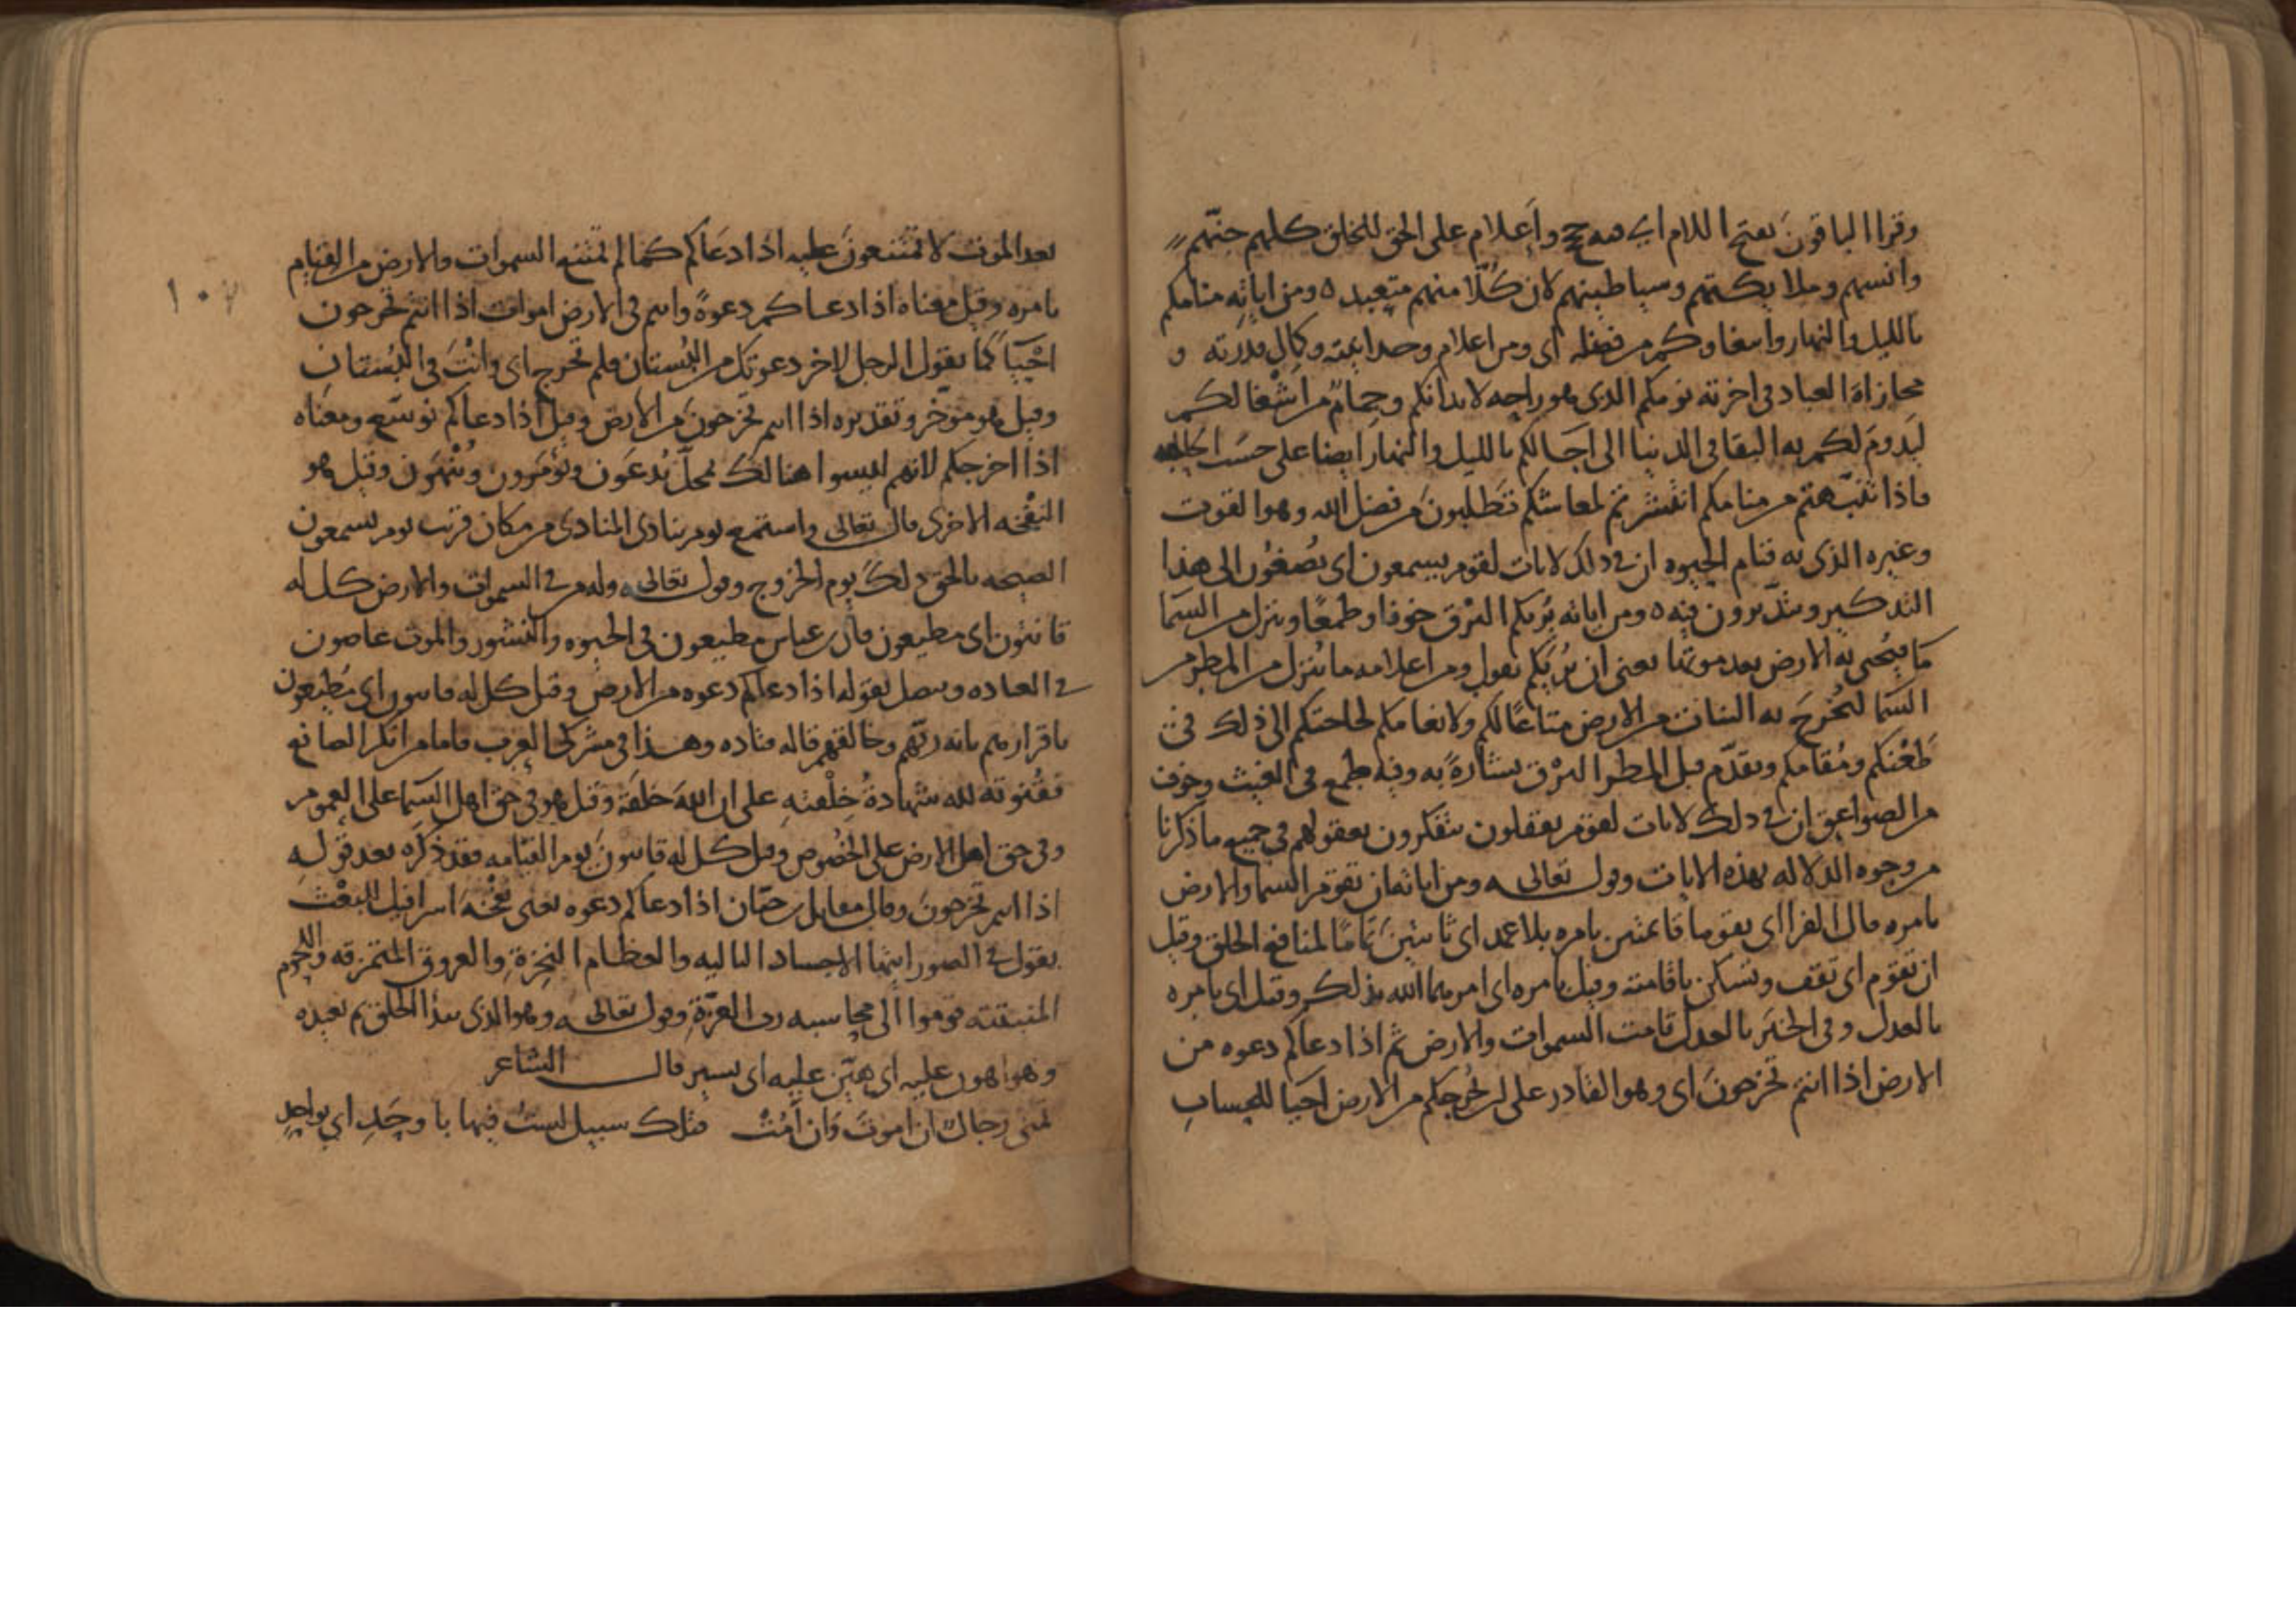 وقرا الباقون بفتح اللام اي هه حجج واعلام على الحق للخلق كلهم جنهم
وانسهم وملايكتهم وسياطينهم لان كلا منهم متعبد ٥ ومن اياته منامكم
بالليل والنهار وابتغاوكم من فضله اى ومن اعلام وحدانيته وكمال قدرته و
مجازاة العباد في اخرته نومكم الذى هو راحه لابدانكم وجمام من اشغالكم
ليدوم لكم به البقا في الدنيا الى اجالكم بالليل والنهار ايضا على حسب الحاجه
فاذا تنبهتم من منامكم انتشرتم لمعاشكم تطلبون من فضل الله وهو القوت
وغيره الذى به قيام الحيوه ان في ذلك لايات لقوم يسمعون اى يصغون الى هذا
التذكير ويتدبرون فيه ٥ ومن اياته يريكم البرق خوفا وطمعا وينزل من السما
ما فيحى به الارض بعد موتها يعنى ان يريكم يقول ومن اعلامه ما ينزل من المطر من
السما ليخرج به النبات من الارض متاعا لكم ولانعامكم لحاجتكم الى ذلك في
ظعنكم ومقامكم ويقدم قبل المطر البرق بشارة به وفيه طمع في الغيث وخوف
من الصواعق ان في ذلك لايات لقوم يعقلون يتفكرون بعقولهم في جميع ما ذكرنا
من وجوه الدلاله بهذه الايات وقول تعالى ومن اياته ان تقوم السما والارض
بامره قال الفرا اى يقوما قائمتين بامره بلا عمد اى ثابتين تماما لمنافع الخلق وقيل
ان تقوم اى تقف وتسكن باقامته وقيل بامره اى امرهما الله بذلك وقيل اى بامره
بالعدل وفي الخبر بالعدل قامت السموات والارض ثم اذا دعاكم دعوه من
الارض اذا انتم تخرجون اى وهو القادر على ان يخرجكم من الارض احيا للحساب
١٠٧
بعد الموت لا تمتنعون عليه اذا دعاكم كما لم تمتنع السموات والارض من القيام
بامره وقيل معناه اذا دعاكم دعوة وانتم في الارض اموات اذا انتم تخرجون
احيا كما يقول الرجل لاخر دعوتك من البستان فلم تخرج اى وانت في البستان
وقيل هو موخر وتقديره اذا انتم تخرجون من الارض وقيل اذا دعاكم توسع ومعناه
اذا اخرجكم لانهم ليسوا هنالك محل يدعون ويومرون وينهون وقيل هو
النفخه الاخرى قال تعالى واستمع يوم ينادى المنادى من مكان قريب يوم يسمعون
الصيحه بالحق ذلك يوم الخروج وقول تعالى وله من في السموات والارض كل له
قانتون اى مطيعون قال ابن عباس مطيعون في الحيوه والنشور والموت عاصون
في العباده ويتصل بقوله اذا دعاكم دعوه من الارض وقيل كل له قانتون اى مطيعون
باقرارهم بانه ربهم وخالقهم قاله قتاده وهذا في مشركى العرب فاما من انكر الصانع
فقنوته لله شهادة خلقته على ان الله خلقه وقيل هو في حق اهل السما على العموم
وفي حق اهل الارض على الخصوص وقيل كل له قانتون يوم القيامه فقد ذكره بعد قوله
اذا انتم تخرجون وقال مقاتل بن حيان اذا دعاكم دعوه يعنى نفخة اسرافيل للبعث
يقول في الصور ايتها الاجساد الباليه والعظام النخرة والعروق المتمزقه واللحوم
المنبتته قوموا الى محاسبه رب العزة وقول تعالى وهو الذى يبدا الخلق ثم يعيده
وهو اهون عليه اى هين عليه اى يسير قال الشاعر
تمنى رجال ان اموت وان امت فتلك سبيل لست فيها باوحد اى بواحد